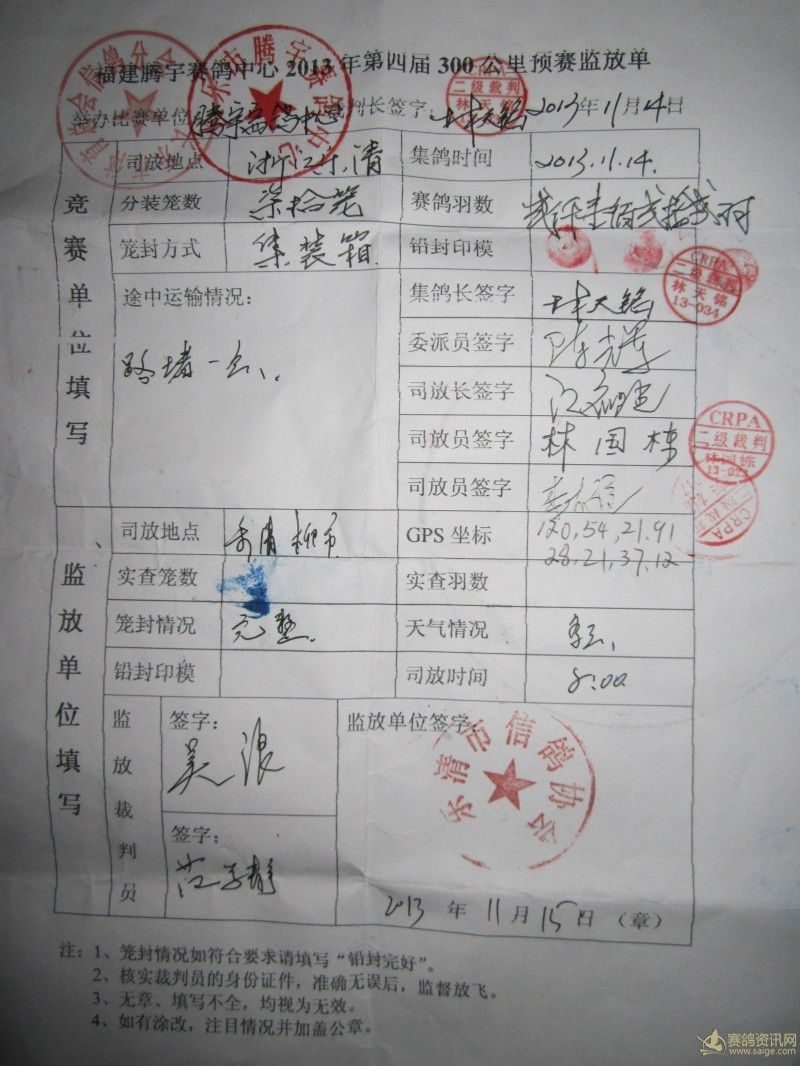 福建腾宇赛鸽中心2013年第四届300公里预赛监放单
举办比赛单位 腾宇赛鸽中心 裁判长签字: 林天铭 2013年11月14日
二级裁判
林天铭
竞赛单位填写
司放地点 浙江乐清 集鸽时间 2013.11.14.
分装笼数 柒拾笼 赛鸽羽数 贰仟壹佰贰拾贰羽
笼封方式 集装箱 铅封印模
途中运输情况: 集鸽长签字 林天铭
CRPA
二级裁判
林天铭
13-034
路堵一会、 委派员签字
司放长签字
司放员签字 林国栋
CRPA
二级裁判
林国栋
司放员签字
CRPA
监放单位填写
司放地点 乐清柳市 GPS 坐标 120,54,21.91
28,21,37.12
实查笼数 实查羽数
笼封情况 完整. 天气情况
铅封印模 司放时间 8:00
监放裁判员
签字: 监放单位签字
吴浪
乐清市信鸽协会
签字:
2013年11月15日(章)
注:1、笼封情况如符合要求请填写“铅封完好”。
2、核实裁判员的身份证件,准确无误后,监督放飞。
3、无章、填写不全,均视为无效。
4、如有涂改,注目情况并加盖公章。
赛鸽资讯网
www.saige.com